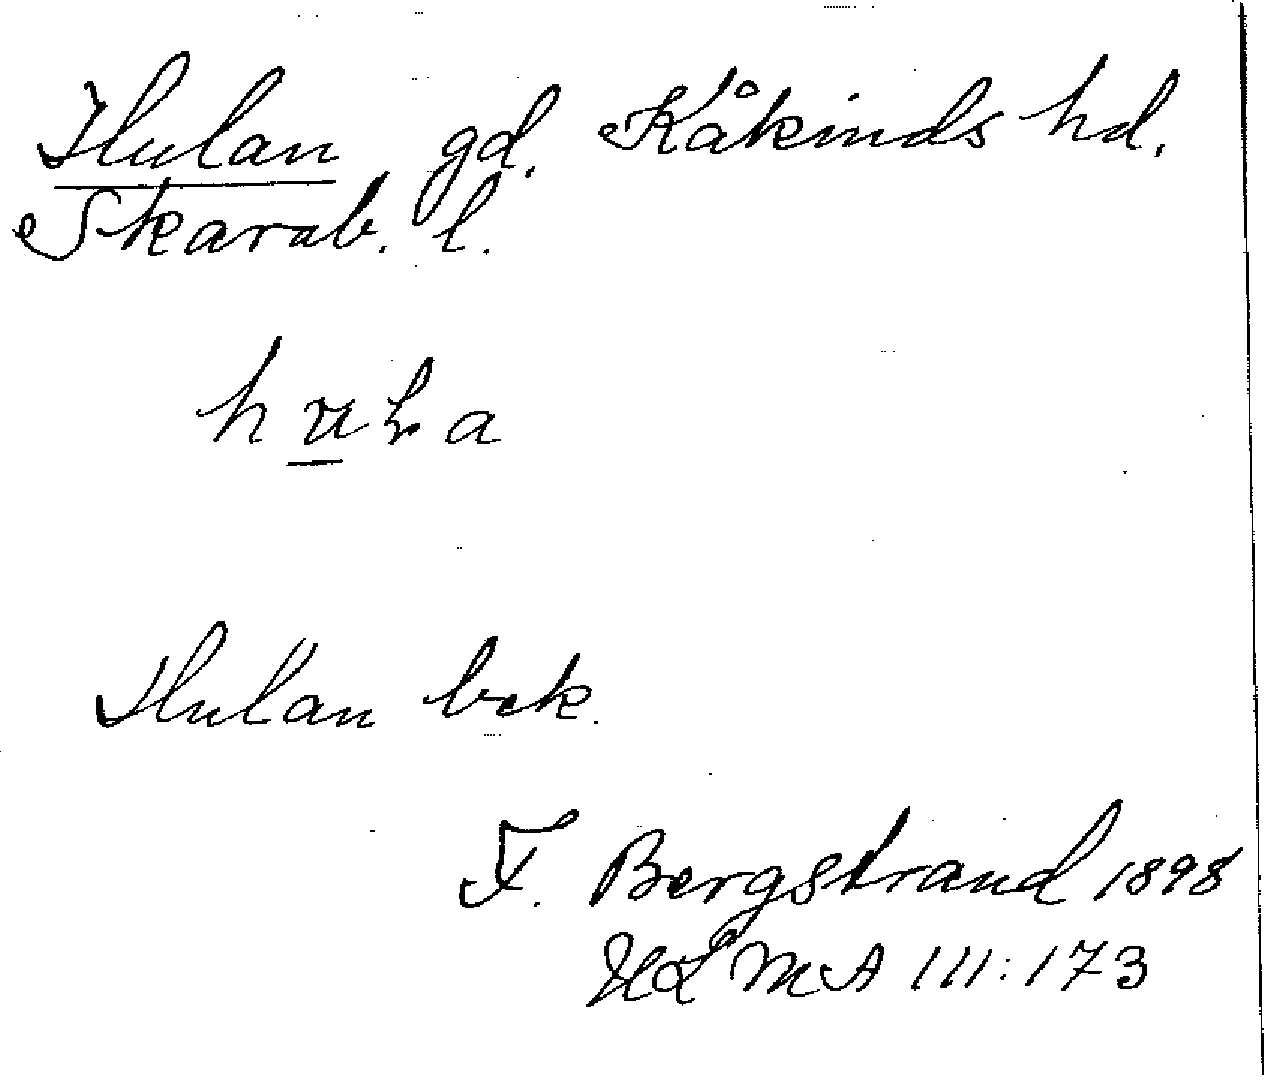 Hulan gd. Kåkinds hd.
Skarab. l.
Hulan bek.
F. Bergstrand 1898
ULMA 111:173